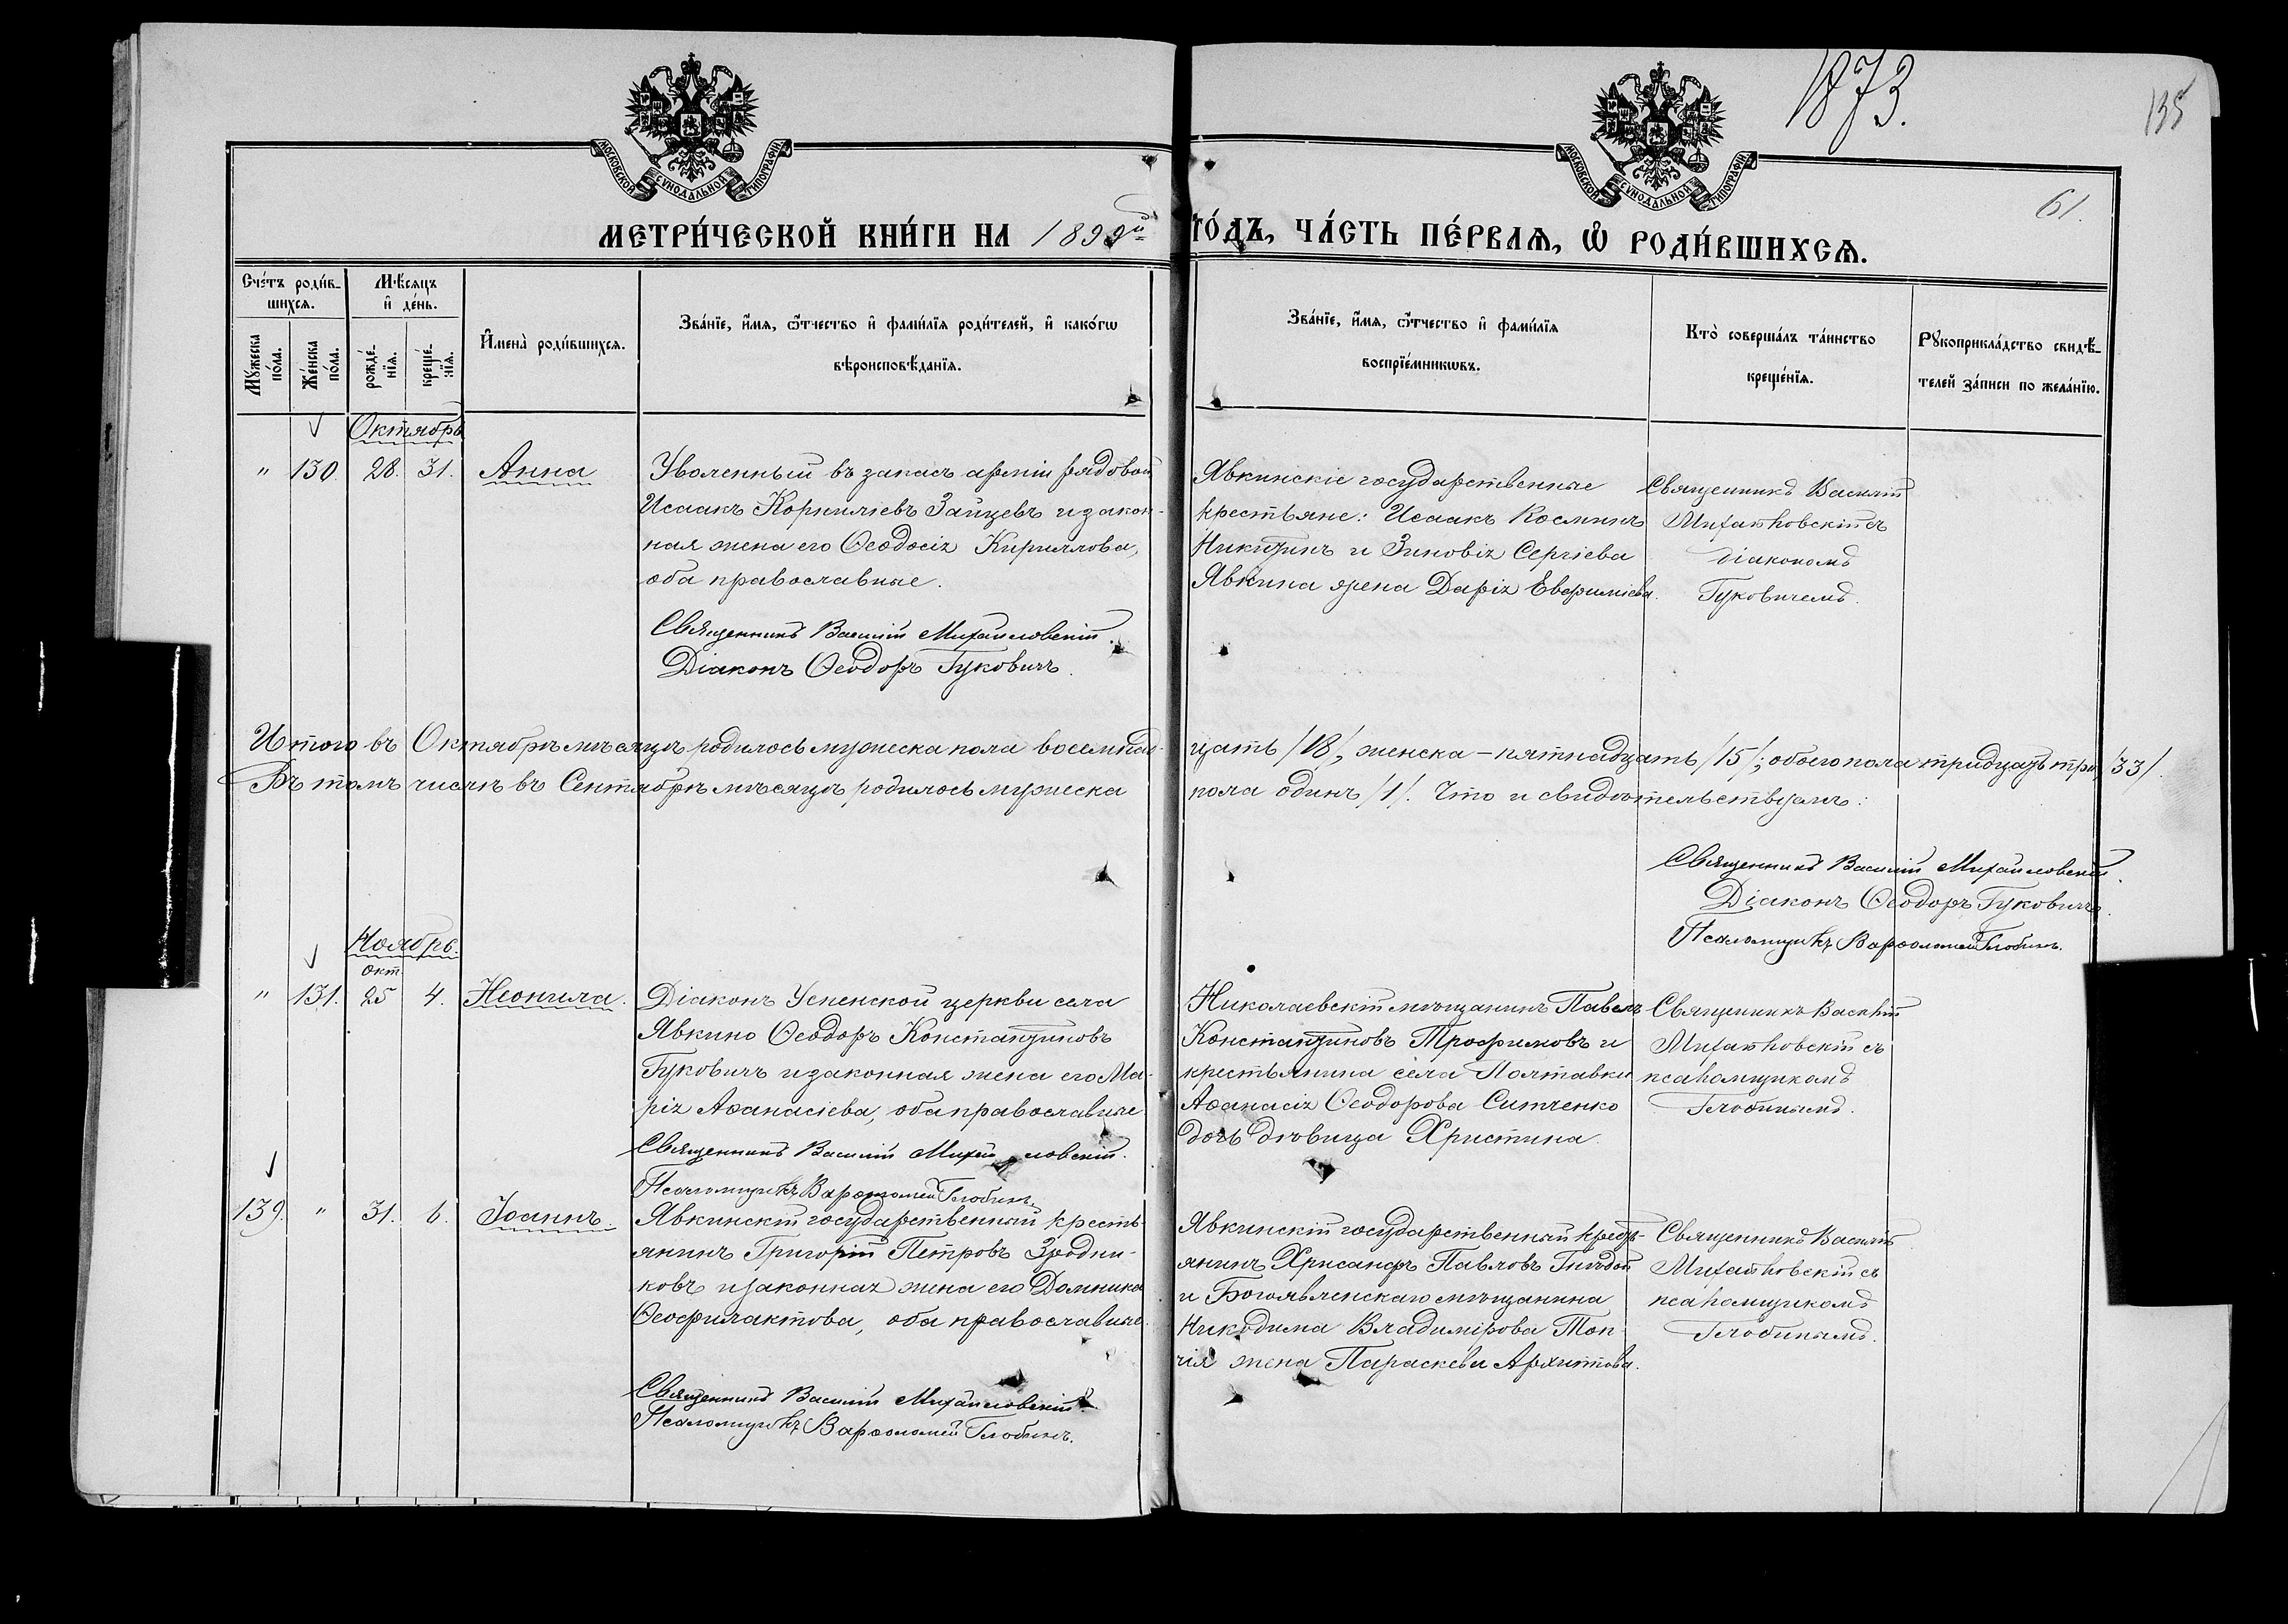 1873.
135
61.
МОСКОВСКОЙ СѴНОДАЛЬНОЙ ТИПОГРАФІИ
МОСКОВСКОЙ СѴНОДАЛЬНОЙ ТИПОГРАФІИ
МЕТРИ́ЧЕСКОЙ КНИ́ГИ НА 1899й ГО́ДЪ, ЧА́СТЬ ПЕ́РВАѦ, Ѡ҆ РОДИ́ВШИХСѦ.
Сче́тъ роди́в-
шихсѧ.
Мѣ́сѧцъ
и҆ де́нь.
И҆мена̀ роди́вшихсѧ.
Зва́нїе, и҆́мѧ, ѻ҆́тчество и҆ фами́лїѧ роди́телей, и҆ како́гѡ
вѣроисповѣ́данїѧ.
Зва́нїе, и҆́мѧ, ѻ҆́тчество и҆ фами́лїѧ
воспрїе́мникѡвъ.
Кто̀ соверша́лъ та́инство
креще́нїѧ.
Рꙋкоприкла́дство свидѣ́-
телей за́писи по жела́нїю.
Мꙋ́жеска
по́ла.
Же́нска
по́ла.
рожде́-
нїѧ.
креще́-
нїѧ.
Октябрь
" 130. 28. 31. Анна
Уволенный въ запасъ арміи рядовой
Исаакъ Корниліевъ Зайцевъ и закон-
ная жена его Ѳеодосія Кириллова,
оба православные.
Священникъ Василій Михайловскій.
Діаконъ Ѳеодоръ Гуковичъ.
Явкинскіе государственные
крестьяне: Исаакъ Косминъ
Никитинъ и Зиновія Сергіева
Явкина жена Дарія Евфиміева.
Священникъ Василій
Михайловскій съ
діакономъ
Гуковичемъ.
Итого въ Октябрѣ мѣсяцѣ родилось мужеска пола восемнад-цать /18/, женска - пятнадцать /15/; обоего пола тридцать три /33/.
Въ томъ числѣ въ Сентябрѣ мѣсяцѣ родилось мужеска пола одинъ /1/. Что и свидѣтельствуемъ:
Священникъ Василій Михайловскій.
Діаконъ Ѳеодоръ Гуковичъ.
Псаломщикъ Варѳоломей Глобинъ.
Ноябрь.
окт.
" 131. 25 4. Неонила.
Діаконъ Успенской церкви села
Явкино Ѳеодоръ Константиновъ
Гуковичъ и законная жена его Ма-
рія Аѳанасіева, оба православные
Священникъ Василій Михайловскій.
Псаломщикъ Варѳоломей Глобинъ.
Николаевскій мѣщанинъ Павелъ
Константиновъ Трофимовъ и
крестьянина села Полтавки
Аѳанасія Ѳеодорова Ситченко
дочь дѣвица Христина.
Священникъ Василій
Михайловскій съ
псаломщикомъ
Глобинымъ.
139. " 31. 6. Іоаннъ.
Явкинскій государственный кресть-
янинъ Григорій Петровъ Зродни-
ковъ и законная жена его Домника
Ѳеофилактова, оба православные.
Священникъ Василій Михайловскій.
Псаломщикъ Варѳоломей Глобинъ.
Явкинскій государственный кресть-
янинъ Хрисанфъ Павловъ Гнѣдой
и Богоявленскаго мѣщанина
Никодима Владимірова Топ-
чія жена Параскева Архиппова.
Священникъ Василій
Михайловскій съ
псаломщикомъ
Глобинымъ.